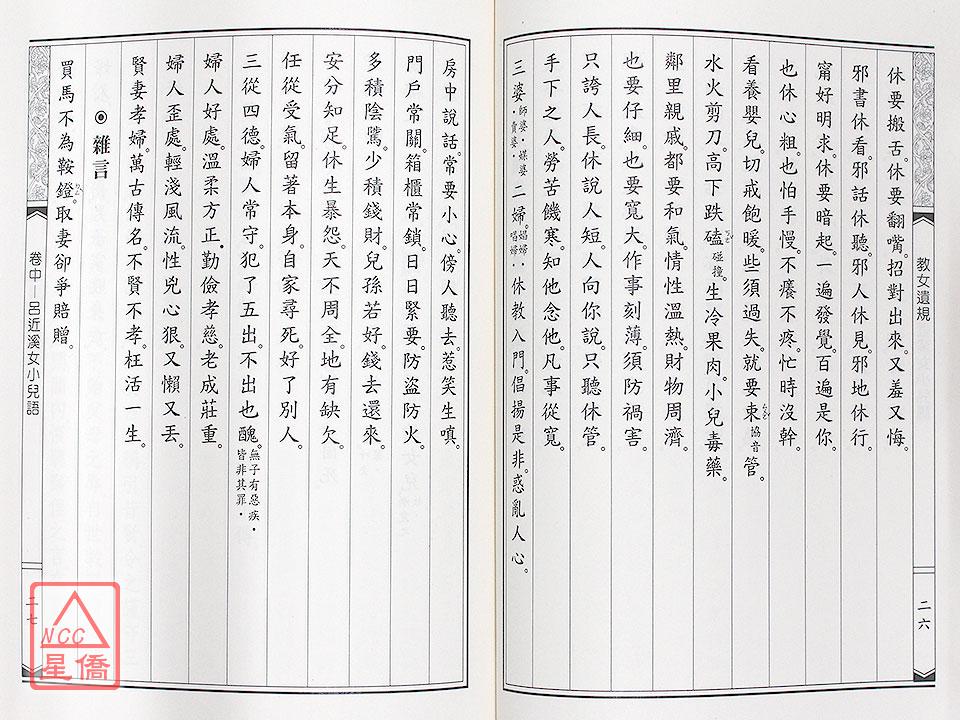 教女遺規
二六
休要搬舌。休要翻嘴。招對出來。又羞又悔。
邪書休看。邪話休聽。邪人休見。邪地休行。
甯好明求。休要暗起。一遍發覺。百遍是你。
也休心粗。也怕手慢。不癢不疼。忙時沒幹。
看養嬰兒。切戒飽暖。些須過失。就要束協音管。
水火剪刀。高下跌磕碰撞。生冷果肉。小兒毒藥。
鄰里親戚。都要和氣。情性溫熱。財物周濟。
也要仔細。也要寬大。作事刻薄。須防禍害。
只誇人長。休說人短。人向你說。只聽休管。
手下之人。勞苦饑寒。知他念他。凡事從寬。
三婆師婆・媒婆・賣婆・二婦。娼婦・唱婦・休教入門。倡揚是非。惑亂人心。
房中說話。常要小心。傍人聽去。惹笑生嗔。
門戶常關。箱櫃常鎖。日日緊要。防盜防火。
多積陰騭。少積錢財。兒孫若好。錢去還來。
安分知足。休生暴怨。天不周全。地有缺欠。
任從受氣。留著本身。自家尋死。好了別人。
三從四德。婦人常守。犯了五出。不出也醜。無子有惡疾・皆非其罪・
婦人好處。溫柔方正。勤儉孝慈。老成莊重。
婦人歪處。輕淺風流。性兇心狠。又懶又丟。
賢妻孝婦。萬古傳名。不賢不孝。枉活一生。
◉雜言
買馬不為鞍鐙。取妻卻爭賠贈。
卷中—呂近溪女小兒語
二七
NCC
星僑